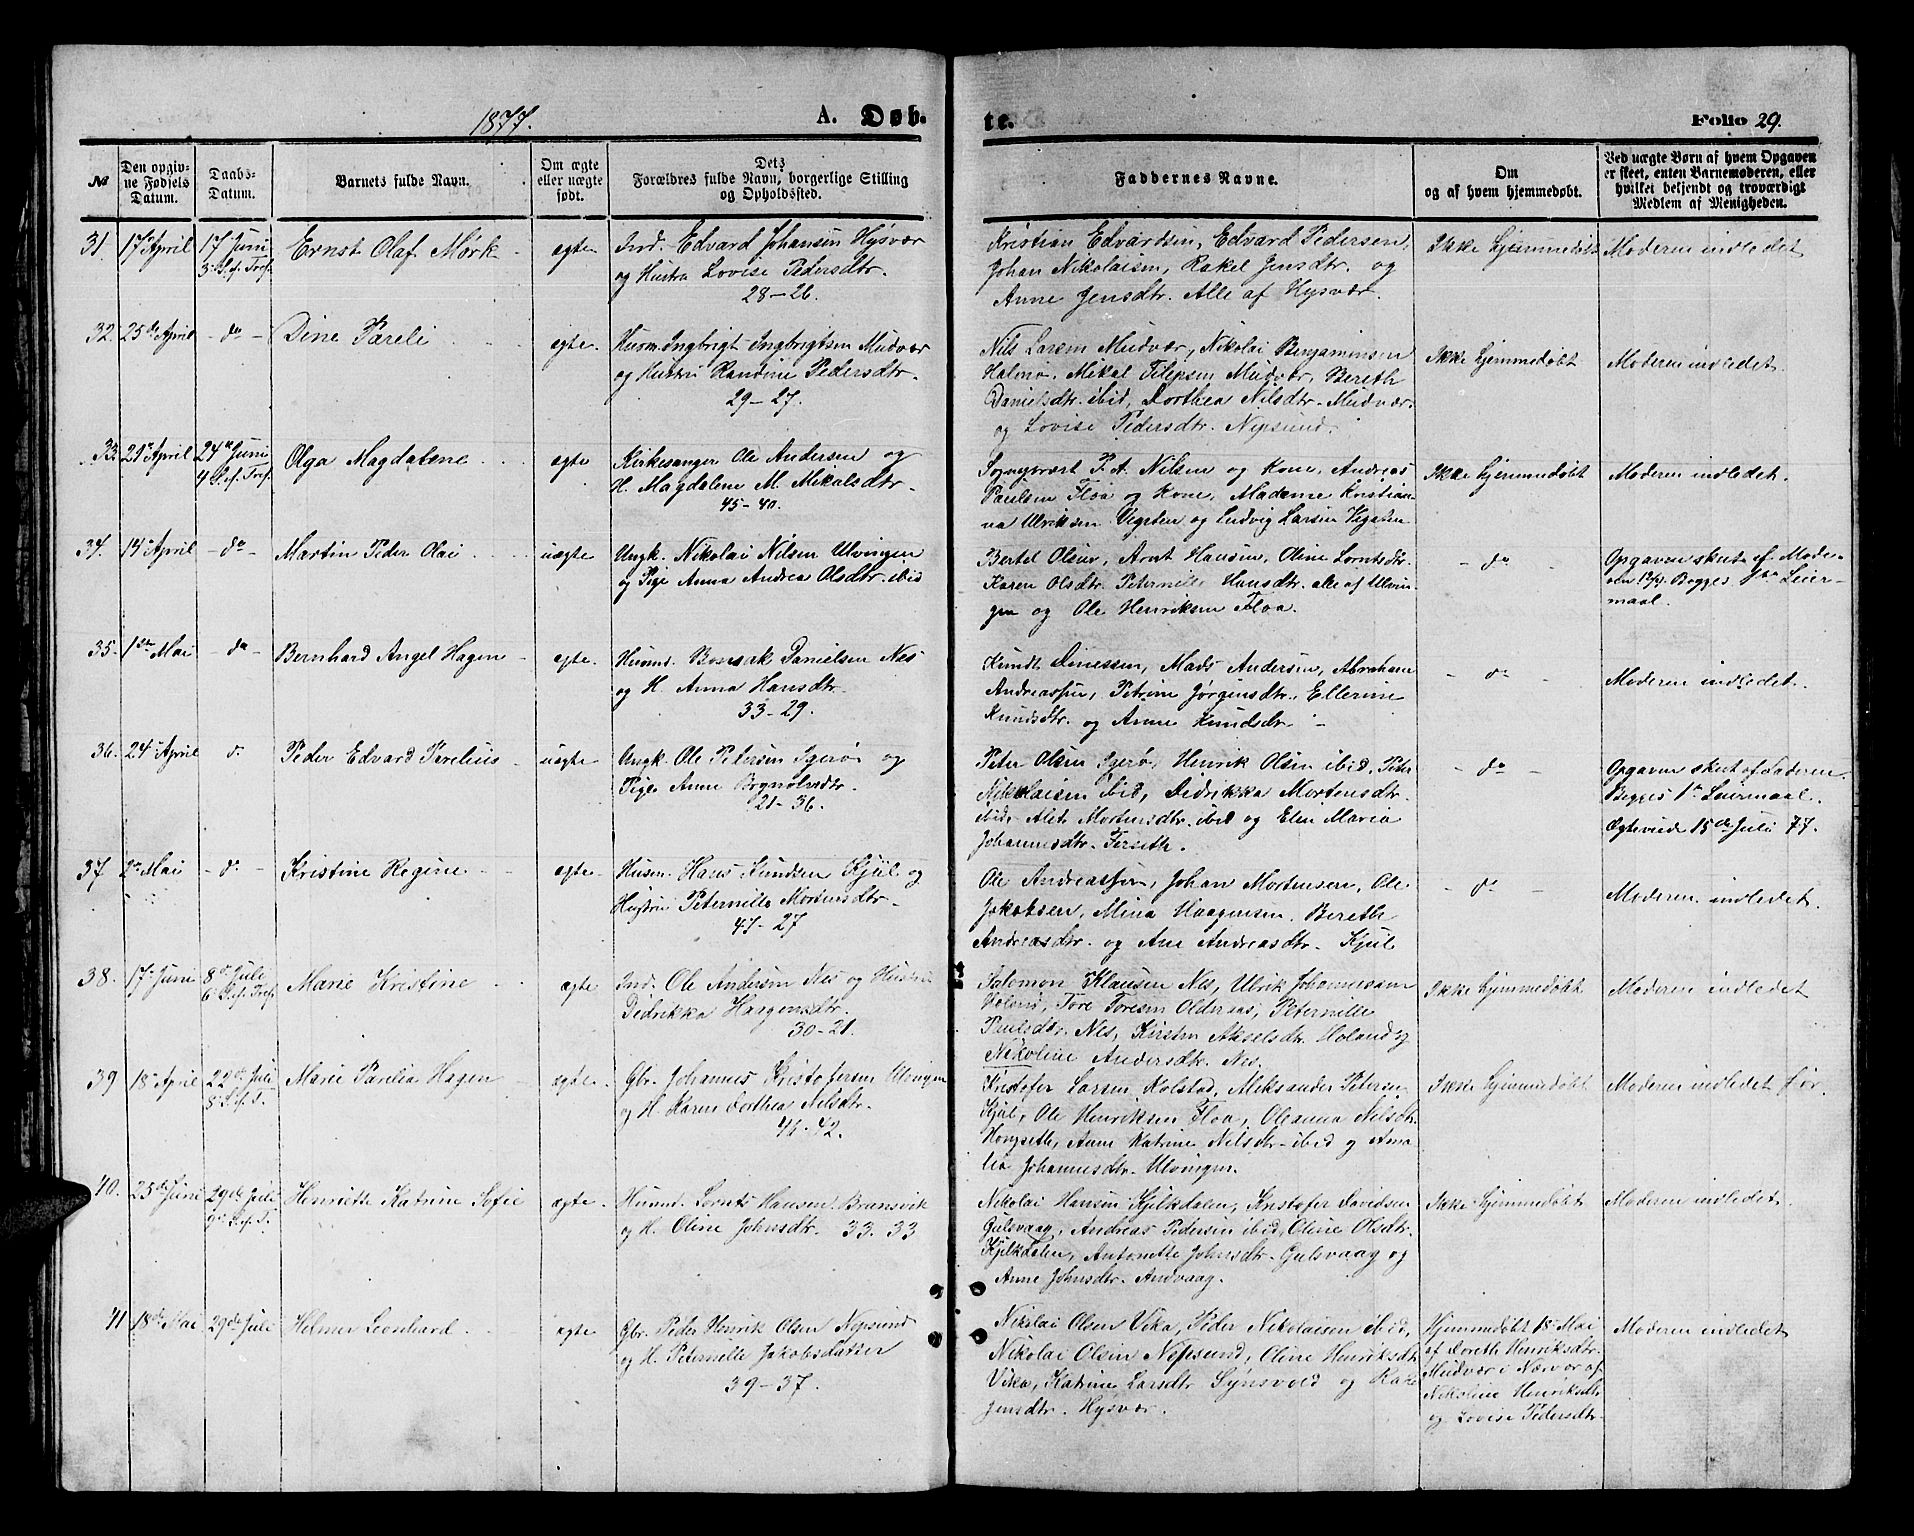 1877.
A. Døb.
te.
Folio 29.
№
Den opgivne Fødsels Datum.
Daabs-Datum.
Barnets fulde Navn.
Om ægte eller uægte født.
Dets Forældres fulde Navn, borgerlige Stilling og Opholdssted.
Faddernes Navne.
Om og af hvem hjemmedøbt.
Ved uægte Børn af hvem Opgaven er skeet, enten Barnemoderen, eller hvilket bekjendt og troværdigt Medlem af Menigheden.
31. 17 April 17 Juni 3. S. ef. Tref. Ernst Olaf Mørk egte
Ind. Edvard Johansen Hysvær
og Hustru Lovise Pedersdtr.
28-26.
Kristian Edvardsen, Edvard Pedersen,
Johan Nikolaisen, Rakel Jensdtr. og
Anne Jensdtr. Alle af Hysvær.
Ikke hjemmedøbt
Moderen indledet
32. 25de April do Dine Pareli egte.
Husm. Ingbrigt Ingbrigtsen Mudvær
og Hustru Randine Pedersdtr.
29-27.
Nils Larsen Mudvær, Nikolai Benjaminsen
Halmø, Mikal Filipsen Mudvær, Bereth
Danielsdtr. ibid, Dorthea Nilsdtr. Mudvær
og Lovise Pedersdtr. Nepsund.
Ikke hjemmedøbt
Moderen indledet.
33. 21 April 24de Juni 4 S. ef. Tref. Olga Magdalene egte
Kirkesanger Ole Andersen og
H. Magdalene M. Mikalsdtr.
45-40.
Sogneprest P. A. Nilsen og Kone, Andreas
Paulsen Floa og Kone, Madame Kristian-
na Ulriksen Vegsten og Ludvig Larsen Vegsten
Ikke hjemmedøbt
Moderen indledet.
34. 14 April do Martin Peder Olai uægte
Ungk. Nikolai Nilsen Ulvingen
og Pige Anna Andrea Olsdtr. ibid
Bertel Olsen, Arnt Hansen, Oline Lorntsdtr.
Karen Olsdtr. Peternille Hansdtr. alle af Ulvin-
gen og Ole Henriksen Floa.
do
Opgaven skeet af Mode-
ren Begges 1ste Leier-
maal.
35. 1ste Mai do Bernhard Angel Hagen egte.
Husmd. Bonsak Danielsen Nes
og H. Anna Hansdtr.
33-29.
Kundt Dinessen, Mads Andersen, Abraham
Andreassen, Petrine Jørgensdtr. Ellerine
Knudsdtr. og Anne Knudsdtr.
do
Moderen indledet.
36. 24 April do Peder Edvard Parelius uægte
Ungk. Ole Petersen Igerø og
Pige Anne Brynolvsdtr.
21-36.
Peter Olsen Igerø, Henrik Olsen ibid, Peter
Nikolaisen ibid, Didrikka Mortensdtr.
ibid, Alet Mortensdtr. ibid og Elen Maria
Johannesdtr. Forseth.
do
Opgaven skeet af Faderen.
Begges 1ste Leiermaal.
Ægteviede 15de Juli 77.
37 2 Mai do Kristine Regine egte
Husm. Hans Kundsen Kjul og
Hustru Peternille Mortensdtr.
47-27
Ole Andreassen, Johan Mortensen, Ole
Jakobsen, Mina Haagensen, Bereth
Andreasdtr. og Ane Andreasdtr. Kjul
do
Moderen indledet
38. 17 Juni 8de Juli 6 S. ef. Tref. Marie Kristine egte
Ind. Ole Andersen Nes og Hustru
Didrikka Haagensdtr.
30-21.
Salomon Klausen Nes, Ulrik Johannessen
Holand, Tore Toresen Olderaas, Peternille
Paulsdtr. Nes, Kirsten Akselsdtr. Holand og
Nikoline Andersdtr. Nes.
Ikke hjemmedøbt
Moderen indledet
39 18 April 22de Juli 8 S. ef. T. Marie Parelia Hagen egte
Gbr. Johannes Kristofersen Ulvingen
og H. Karen Dorthea Nilsdtr.
41-42.
Kristofer Larsen Kolstad, Aleksander Petersen
Kjul, Ole Henriksen Floa, Oleanna Nilsdtr.
Hongseth, Anne Katrine Nilsdtr. ibid og Ama-
lia Johannesdtr. Ulvingen.
Ikke hjemmedøbt
Moderen indledet før.
40. 25de Juni 29de Juli 9 S. ef. T. Henriette Katrine Sofie egte
Husmd. Lornts Hansen Bransvik
og H. Oline Johnsdtr. 33. 33
Nikolai Hansen Kjelkdalen, Kristofer Davidsen
Gulsvaag, Andreas Pedersen ibid, Oline Olsdtr.
Kjelkdalen, Antonette Johnsdtr. Gulsvaag og
Anne Johnsdtr. Andvaag.
Ikke hjemmedøbt
Moderen indledet
41 18de Mai 29de Juli Helmer Leonhard egte
Gbr. Peder Henrik Olsen Nepsund
og H. Peternelle Jakobsdatter
39-37.
Nikolai Olsen Vika, Peder Nikolaisen ibid,
Nikolai Olsen Nepsund, Oline Henriksdtr.
Vika, Katrine Larsdtr Synsvold og
Jensdtr. Hysvær.
Hjemmedøbt 18 Mai
af Dorette Henriksdtr.
Mudvær i Nærvær af
Nikoline Henriksdtr
og Lovise Pedersdtr.
Moderen indledet